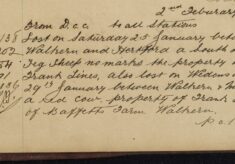 2nd February
From D.C.C. to all Stations
138 Lost on Saturday 25 January betw
202 Walkern and Hertford a South d
54 Teg Sheep no marks the property o
91 Frank Lines, also lost on Wednes
186 29th January between Walkern &
a Red cow, property of Frank
of Baffetts Farm Walkern